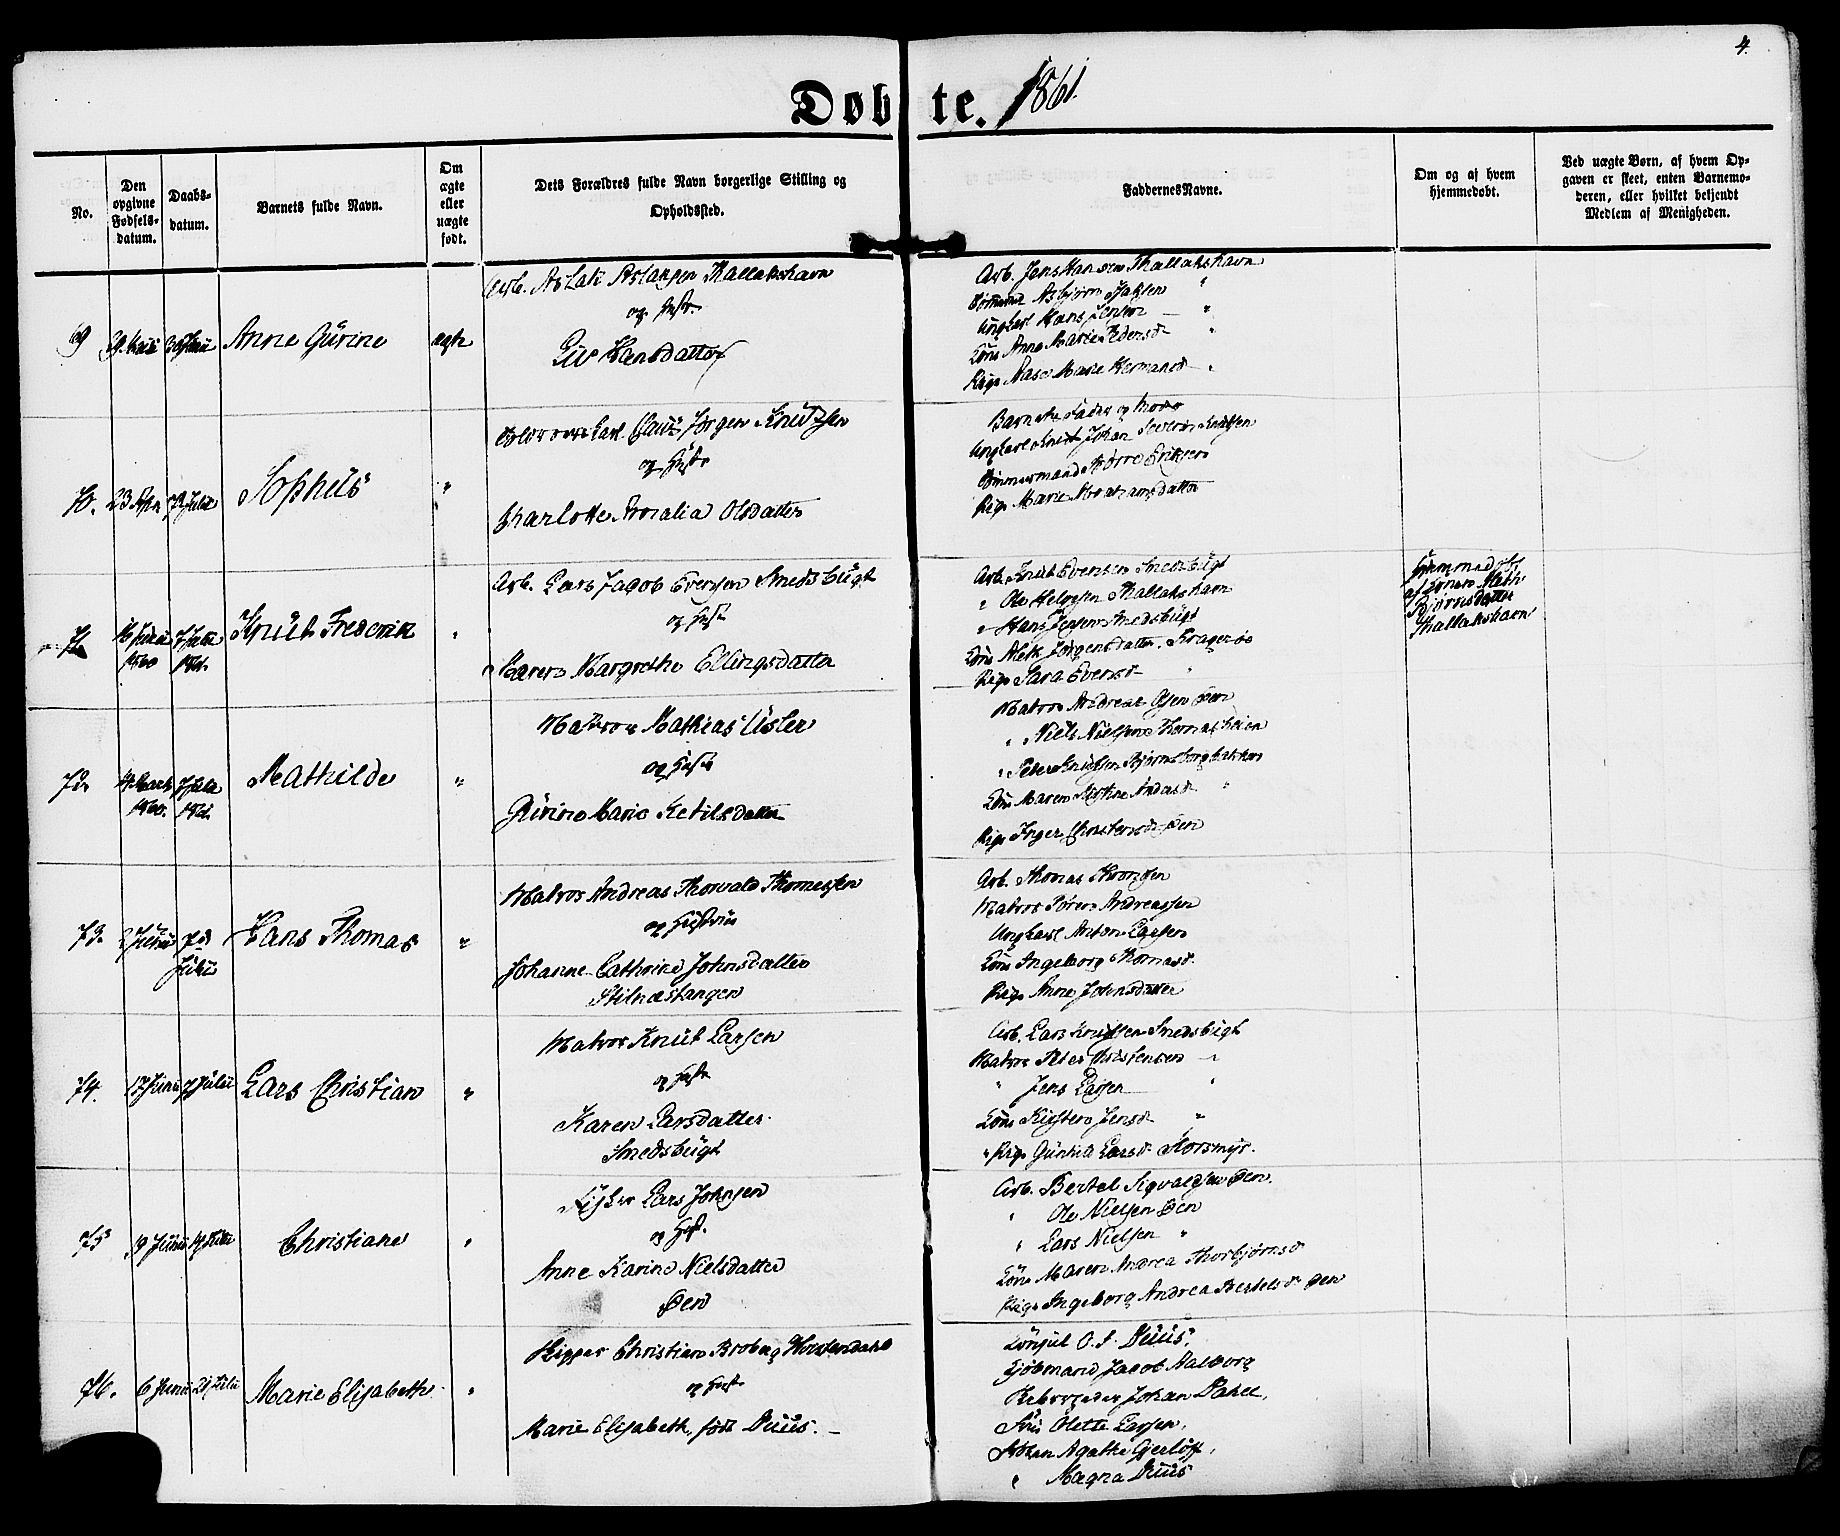 4.
Døbte. 1861.
No.
Den opgivne Fødsels-datum.
Daabs-datum.
Barnets fulde Navn.
Om ægte eller uægte født.
Dets Forældres fulde Navn borgerlige Stilling og Opholdssted.
Faddernes Navne.
Om og af hvem hjemmedøbt.
Ved uægte Børn, af hvem Opgaven er skeet, enten Barnemoderen, eller hvilket betjendt Medlem af Menigheden.
69
Anne Gurine
ægte
Arb. Aslak Aslaksen Thallakshavn
og Hustr.
Liv Hansdatter
Arb. Jens Hansen Thallakshavn
Asbjørn Isaksen "
Ungkarl Hans Jensen — "
Kone Anne Marie Pedersd. "
Pige Aase Marie Hermansd. — "
70.
23 Apr
7 Julii
Sophus
"
Claus Jørgen Knutzsen
og Hustr.
Charlotte Rosalia Olsdatter
Barnets Fader og Moder
Ungkarl Knut Johan Severin Knutsen
Tømmermand Børre Eriksen
Pige Marie Abrahamsdatter
71.
16 Julii 1860
7 Julii 1861.
Knut Frederik
"
Arb. Lars Jacob Evensen Smedsbugt
og Hust.
Maren Margrethe Ellingsdatter
Arb. Knut Evensen Smedsbugt
" Ole Helgesen Thallakshavn
" Hans Jensen Smedsbugt
Kone Jørgensdatter. Kragerøe
Pige Sara Evensd. "
Hjemmedøbt
af Konen
Bjørnsdatter
Thallakshavn
72.
4 Marts 1860.
7 Julii 1861.
Mathilde
"
Matros Mathias Usler
og Hustr
Gurine Marie Ketilsdatter
Matros Andreas Olsen Øen
" Niels Nielsen Thomasheien
" Peter Knutsen Bjørnsborgbakken
Kone Maren Kirstine Andersd. "
Pige Inger Christensd. Øen
73.
2 Junii
7de Julii
Hans Thomas
"
Matros Andreas Thorvald Thomessen
og Hustrue
Johanne Cathrine Johnsdatter
Stilnæstangen
Arb. Thomas
Matros Søren Andreassen
Ungkarl Anton Larsen
Kone Ingeborg Thomasd.
Pige Anne Johnsdatter
74.
17 Junii
7 Julii
Lars Christian
"
Matros Knut Larsen
og Hustr
Karen Larsdatter.
Smedsbugt
Arb. Lars Knutsen Smedsbugt
Matros Peter Christensen — "
" Jens Larsen "
Kone Kirsten Jensd. "
Pige Gunhild Larsd. Korsmyr.
75
19 Junii
14 Julii
Christiane
"
Fisker Lars Johnsen
og Hust.
Anne Karine Nielsdatter
Øen
Arb. Bertel Sigvaldsen Øen.
" Ole Nielsen Øen
" Lars Nielsen "
Kone Maren Andrea Thorbjørnsd.
Pige Ingeborg Andrea Bertelsd. Øen
76.
6 Junii
21 Julii
Marie Elisabeth.
"
Skipper Christian Broberg
og Hustr
Marie Elisabeth, født Duus. —
Konsul O. S. Duus.
Kjøbmand Jacob Aalborg
Johan
Frue Olette Larsen,
Frøken Agathe Gjerløff,
" Magna Duus